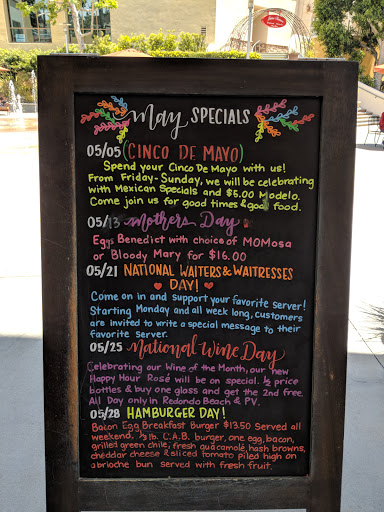 May SPECIALS
05/05 (CINCO DE MAYO)
Spend your Cinco De Mayo with us!
From Friday-Sunday, we will be celebrating
with Mexican Specials and $5.00 Modelo.
Come join us for good times & good food.
05/13 Mothers Day
Eggs Benedict with choice of MOMosa
or Bloody Mary for $16.00
05/21 NATIONAL WAITERS & WAITRESSES
DAY!
Come on in and support your favorite server!
Starting Monday and all week long, customers
are invited to write a special message to their
favorite server.
05/25 National Wine Day
Celebrating our Wine of the Month, our new
Happy Hour Rosé will be on special. ½ price
bottles & buy one glass and get the 2nd free.
All Day only in Redondo Beach & PV.
05/28 HAMBURGER DAY!
Bacon Egg Breakfast Burger $13.50 Served all
weekend, ⅓ lb. C.A.B. burger, one egg, bacon,
grilled green chile, fresh guacamole, hash browns,
cheddar cheese & sliced tomato piled high on
a brioche bun served with fresh fruit.